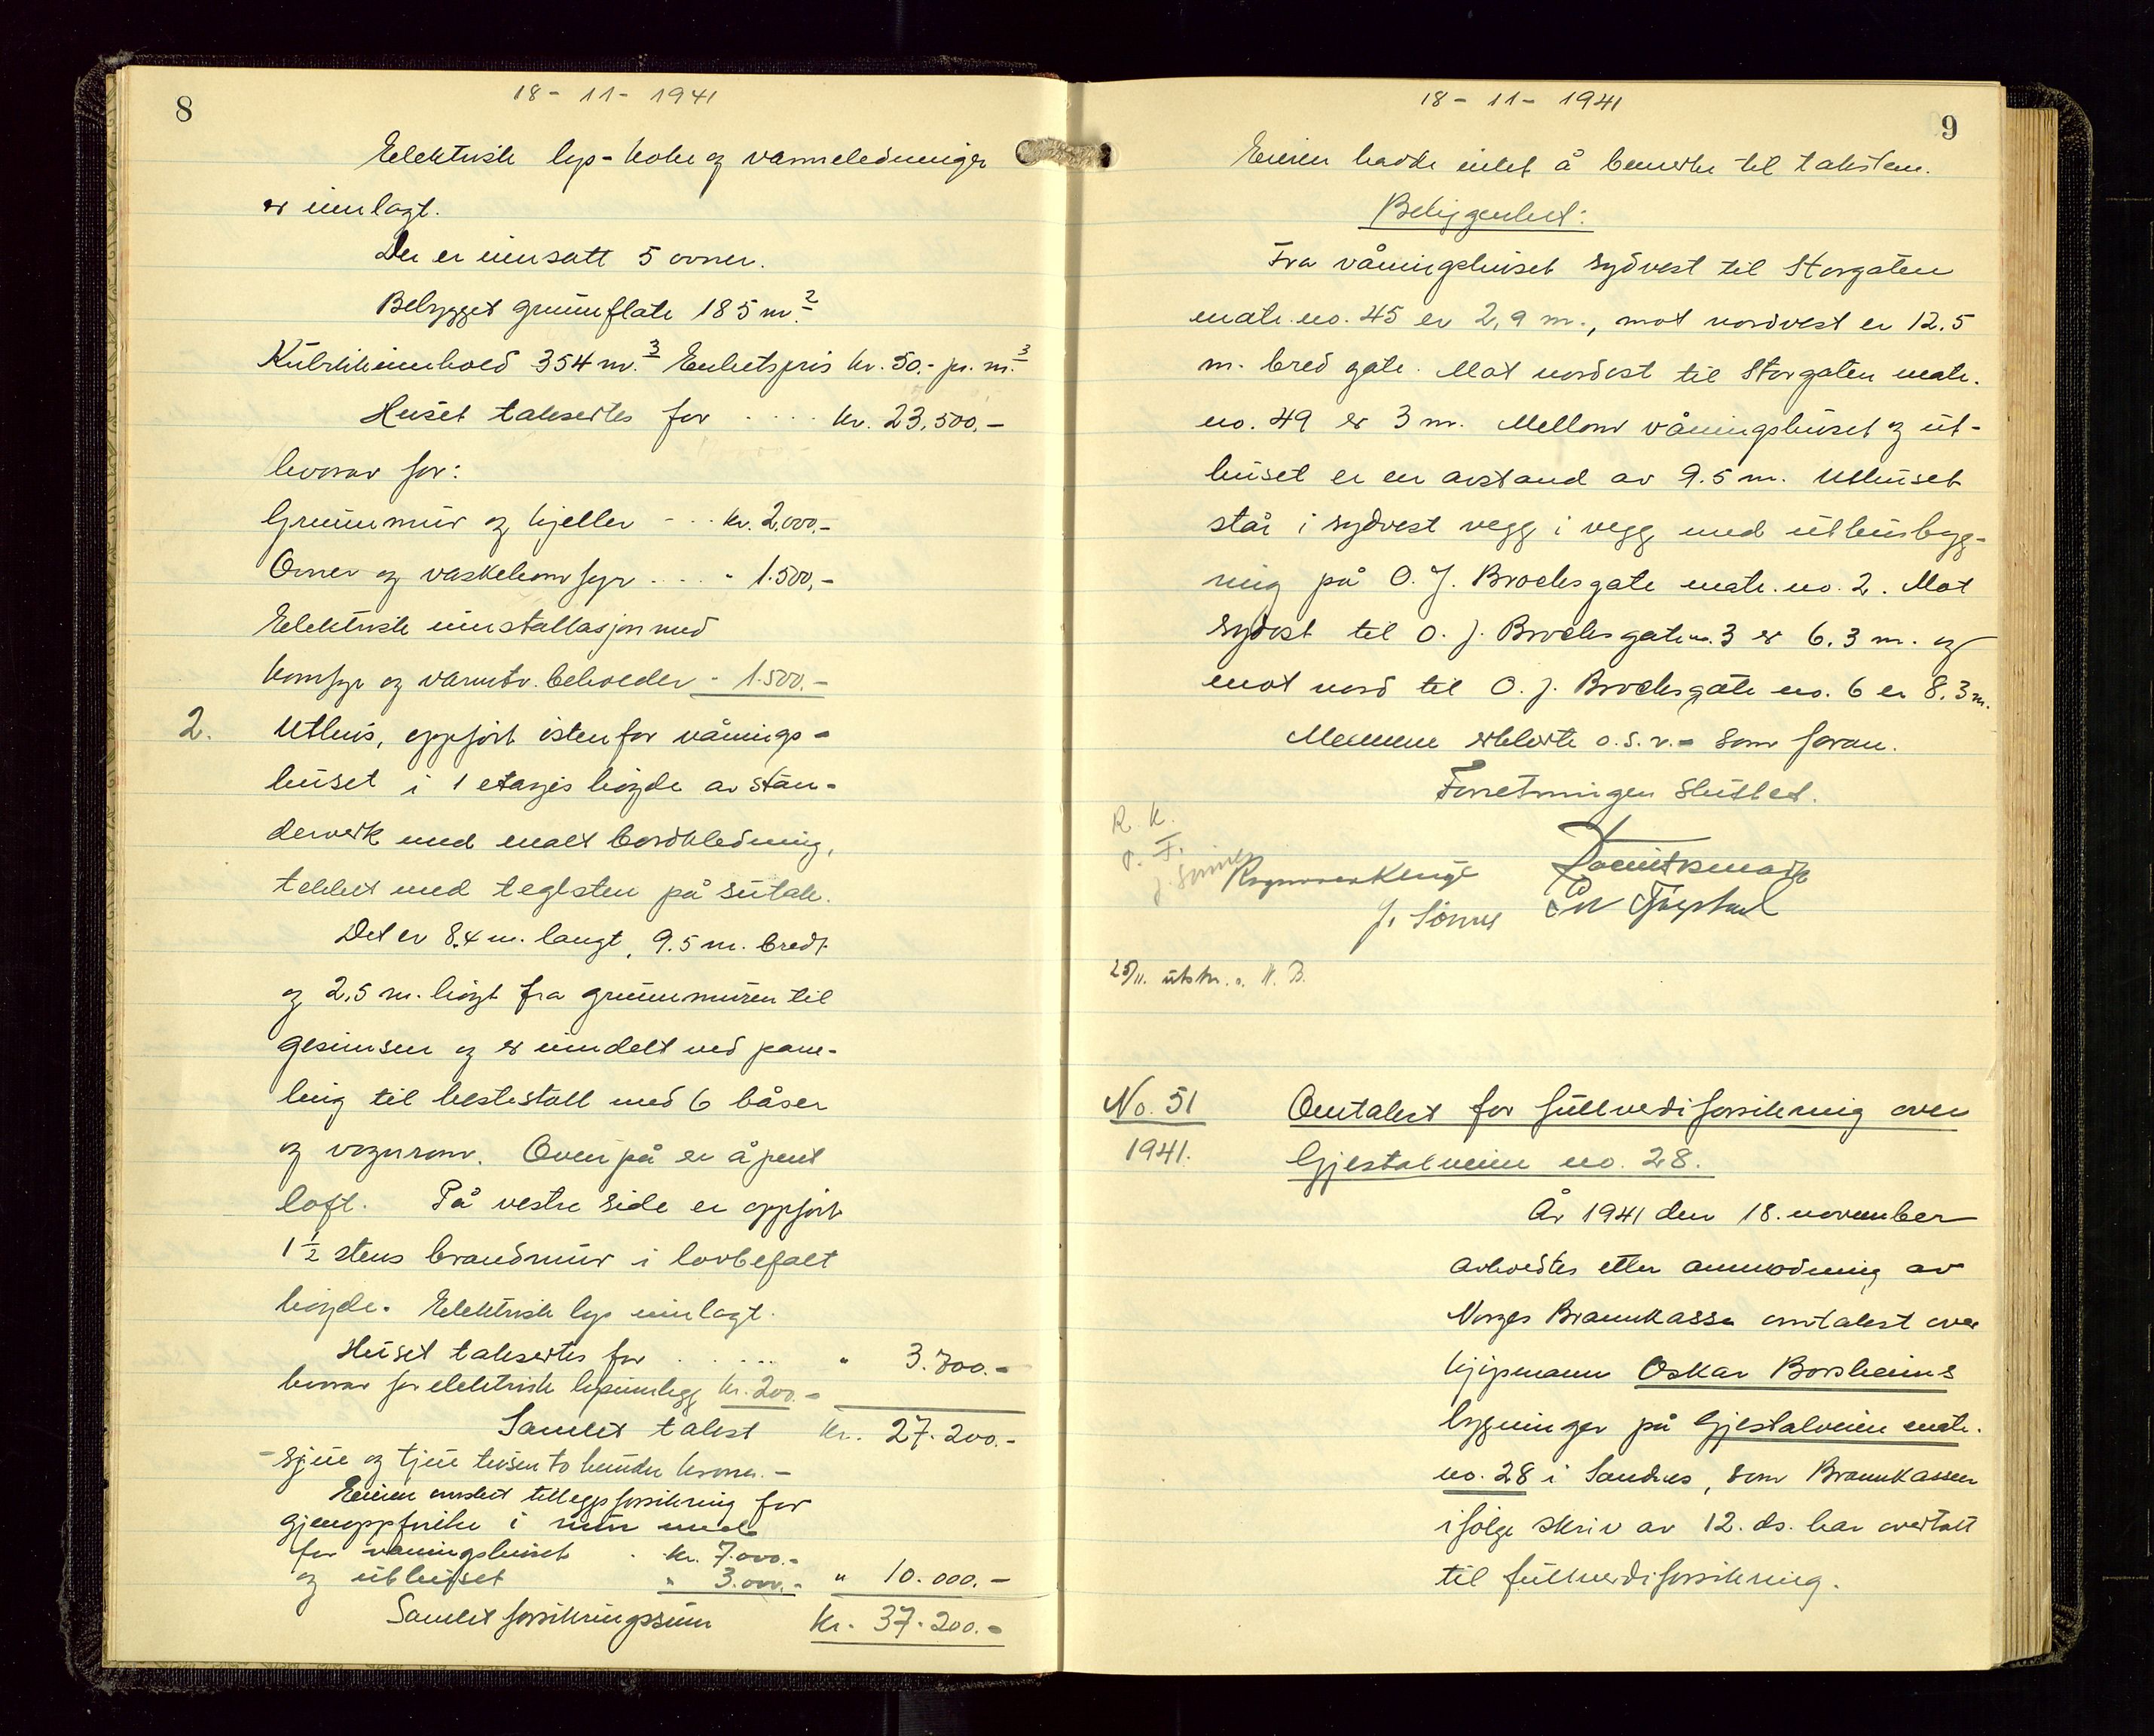 8
18 - 11 - 1941
Elektrisk lys- koke og varmeledninger
er innlagt.
Der er innsatt 5 ovner.
Bebygget grunnflate 185 m.²
Kubikkinnhold 354 m.³ Enhetspris kr. 50.- pr. m.³
Huset takseres for .... kr. 23,500,-
hvorav for:
Grunnmur og kjeller - .. kr. 2,000,-
Ovner og vaskekomfyr .... " 1.500,-
Elektrisk installasjon med
komfyr og varmtv. beholder - 1.500.-
2. Uthus, oppført østenfor vånings-
huset i 1 etasjes høyde av sten-
derverk med malt bordkledning,
tekket med teglsten på sutak.
Det er 8.4 m. langt, 9.5 m. bredt
og 2,5 m. høyt fra grunnmuren til
gesimsen og er inndelt ved pane-
ling til hestestall med 6 båser
og vognrom. Oven på er åpent
loft. På vestre side er oppført
1 ½ stens brandmur i lovbefalt
høyde. Elektrisk lys innlagt.
Huset takseres for ..... " 3.700.-
hvorav for elektrisk lysinnlegg kr. 200.-
Samlet takst kr. 27.200.-
- sju og tjue tusen to hundre kroner. -
Eieren ønsket tilleggsforsikring for
gjenoppførelse i mur med
for våningshuset . kr. 7.000.-
og uthuset " 3.000.- " 10.000.-
Samlet forsikringssum kr. 37.200.-
18 - 11 - 1941
9
Eieren hadde intet å bemerke til taksten.
Beliggenhet:
Fra våningshuset sydvest til Storgaten
matr. no. 45 er 2,9 m., mot nordvest er 12.5
m. bred gate. Mot nordost til Storgaten matr.
no. 49 er 3 m. Mellom våningshuset og ut-
huset er en avstand av 9.5 m. Uthuset
står i sydvest vegg i vegg med uthusbyg-
ning på O. J. Brochsgate matr. no. 2. Mot
sydost til O. J. Brochsgate no. 3 er 6.3 m. og
mot nord til O. J. Brochsgate no. 6 er 8.3 m.
Mennene erklærte o.s.v. - som foran.
Forretningen sluttet.
R. K.
O. F.
J. Sømme
J. Sømme
25/11. utskr. s. N. B.
No. 51
1941.
Omtakst for fullverdiforsikring over
Gjestalveien no. 28.
År 1941 den 18. november
avholdtes etter anmodning av
Norges Brannkasse omtakst over
kjøpmann Oskar Borsheims
bygninger på Gjestalveien matr.
no. 28 i Sandnes, som Brannkassen
ifølge skriv av 12. ds. har overtatt
til fullverdiforsikring.